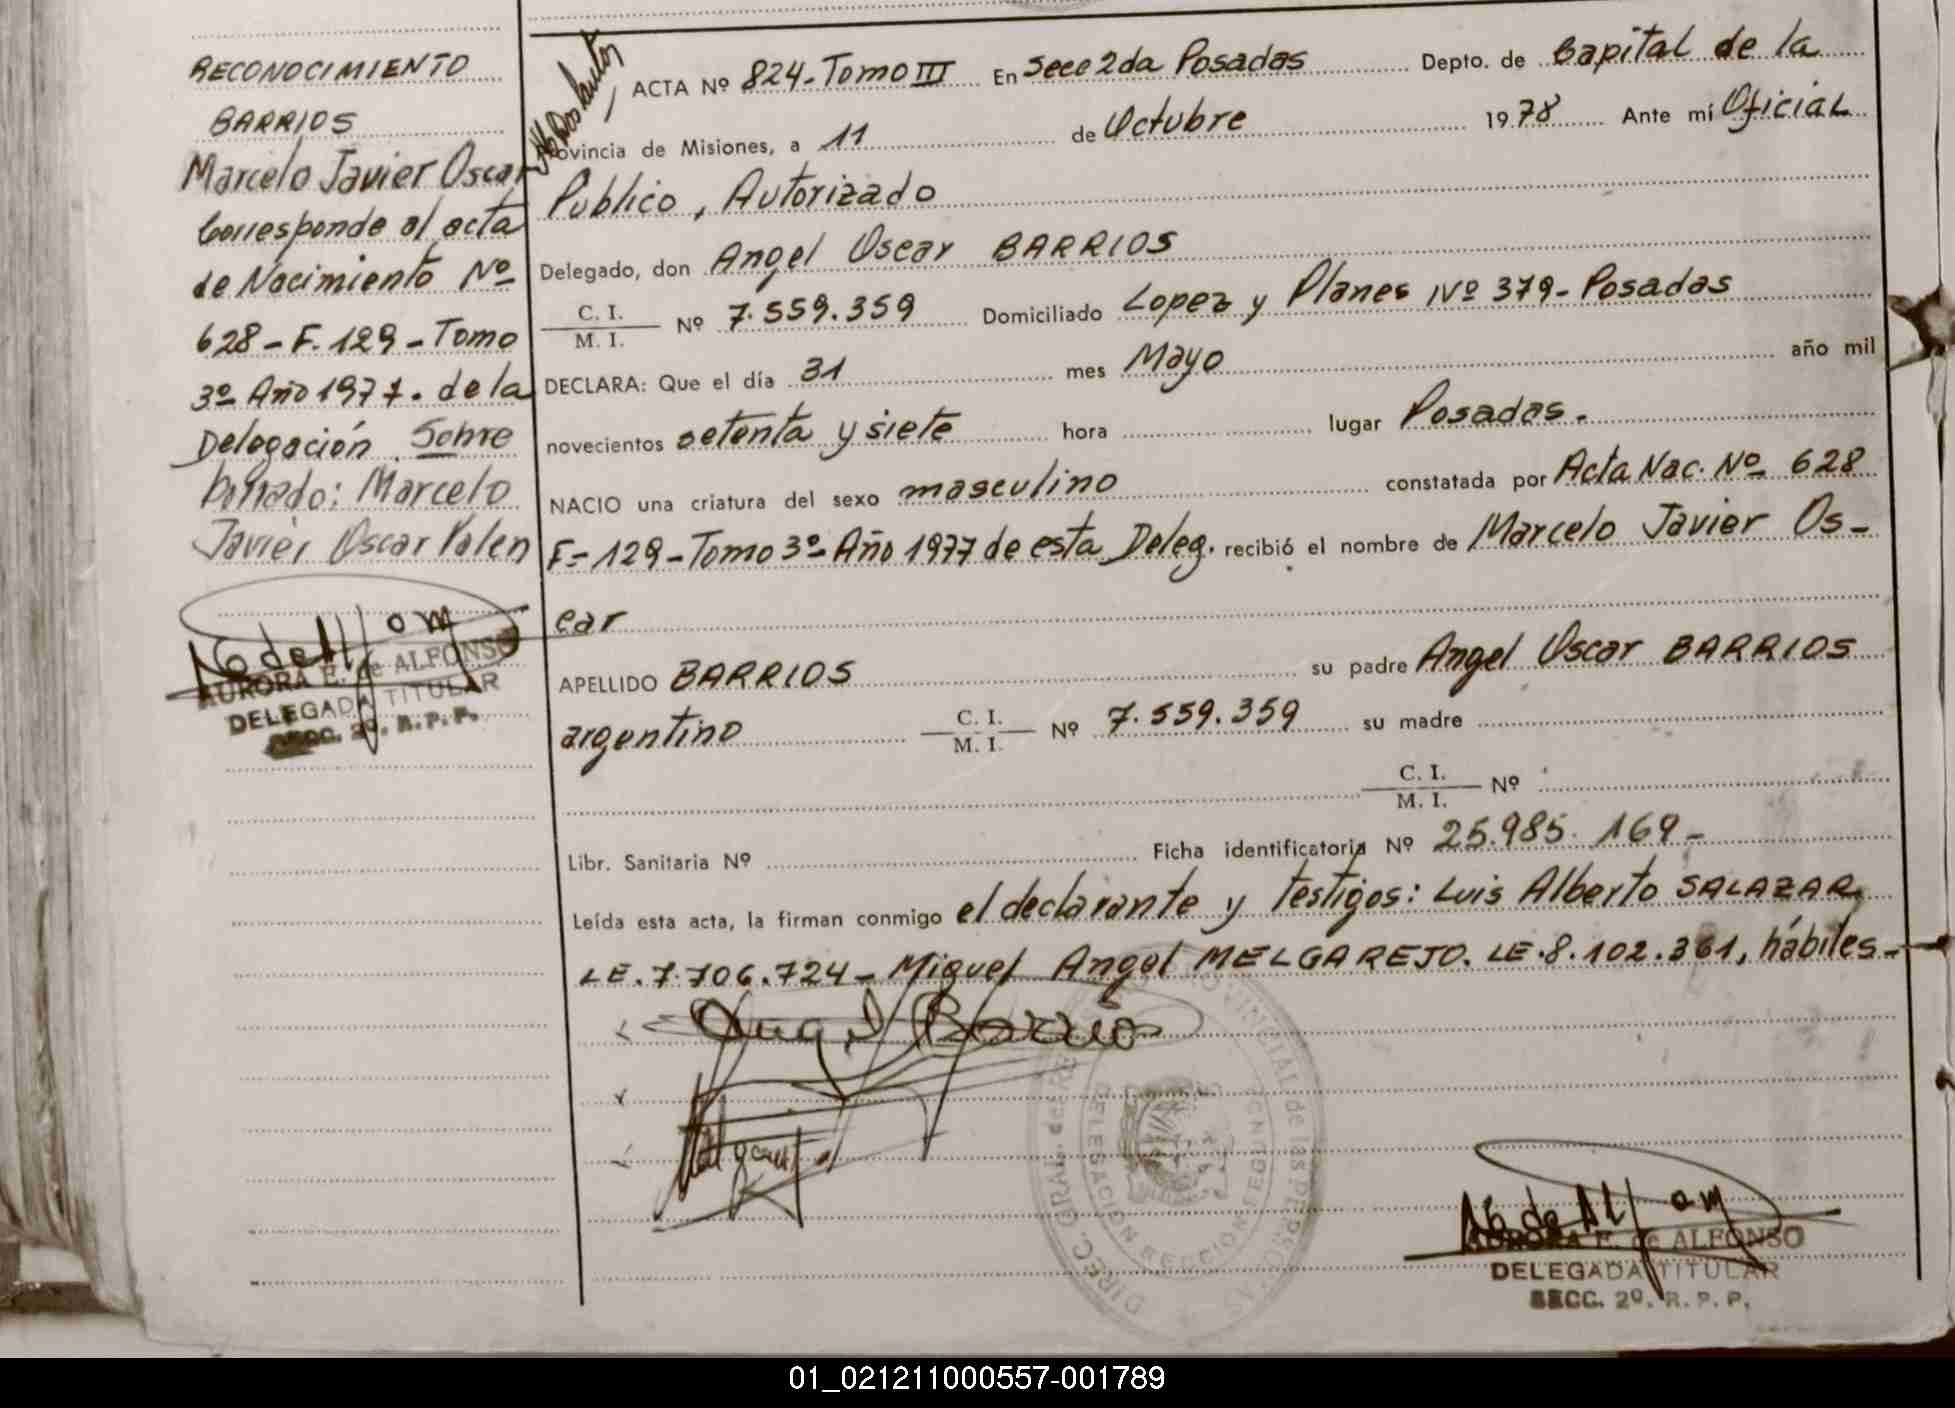 RECONOCIMIENTO
BARRIOS
Marcelo Javier Oscar
Corresponde al acta
de Nacimiento Nº
628 - F. 129 - Tomo
3º Año 1977. de la
Delegación. Sobre
borrado: Marcelo
Javier Oscar Valen
AURORA E. de ALFONSO
DELEGADA TITULAR
SECC. 2º. R. P. P.
ACTA Nº 824 - Tomo III En Secc 2da Posadas Depto. de Capital de la
Provincia de Misiones, a 11 de Octubre 1978 Ante mí Oficial
Publico, Autorizado
Delegado, don Angel Oscar BARRIOS
C. I. / M. I. Nº 7.559.359 Domiciliado Lopez y Planes Nº 379 - Posadas
DECLARA: Que el día 31 mes Mayo año mil
novecientos setenta y siete hora lugar Posadas.
NACIO una criatura del sexo masculino constatada por Acta Nac. Nº 628
F= 129 - Tomo 3º - Año 1977 de esta Deleg. recibió el nombre de Marcelo Javier Os-
car
APELLIDO BARRIOS su padre Angel Oscar BARRIOS
argentino C. I. / M. I. Nº 7.559.359 su madre
C. I. / M. I. Nº
Libr. Sanitaria Nº Ficha identificatoria Nº 25.985.169 -
Leída esta acta, la firman conmigo el declarante y testigos: Luis Alberto SALAZAR
LE. 7.706.724 - Miguel Angel MELGAREJO. LE. 8.102.361, hábiles -
Angel Barrios
AURORA E. de ALFONSO
DELEGADA TITULAR
SECC. 2º. R. P. P.
01_021211000557-001789